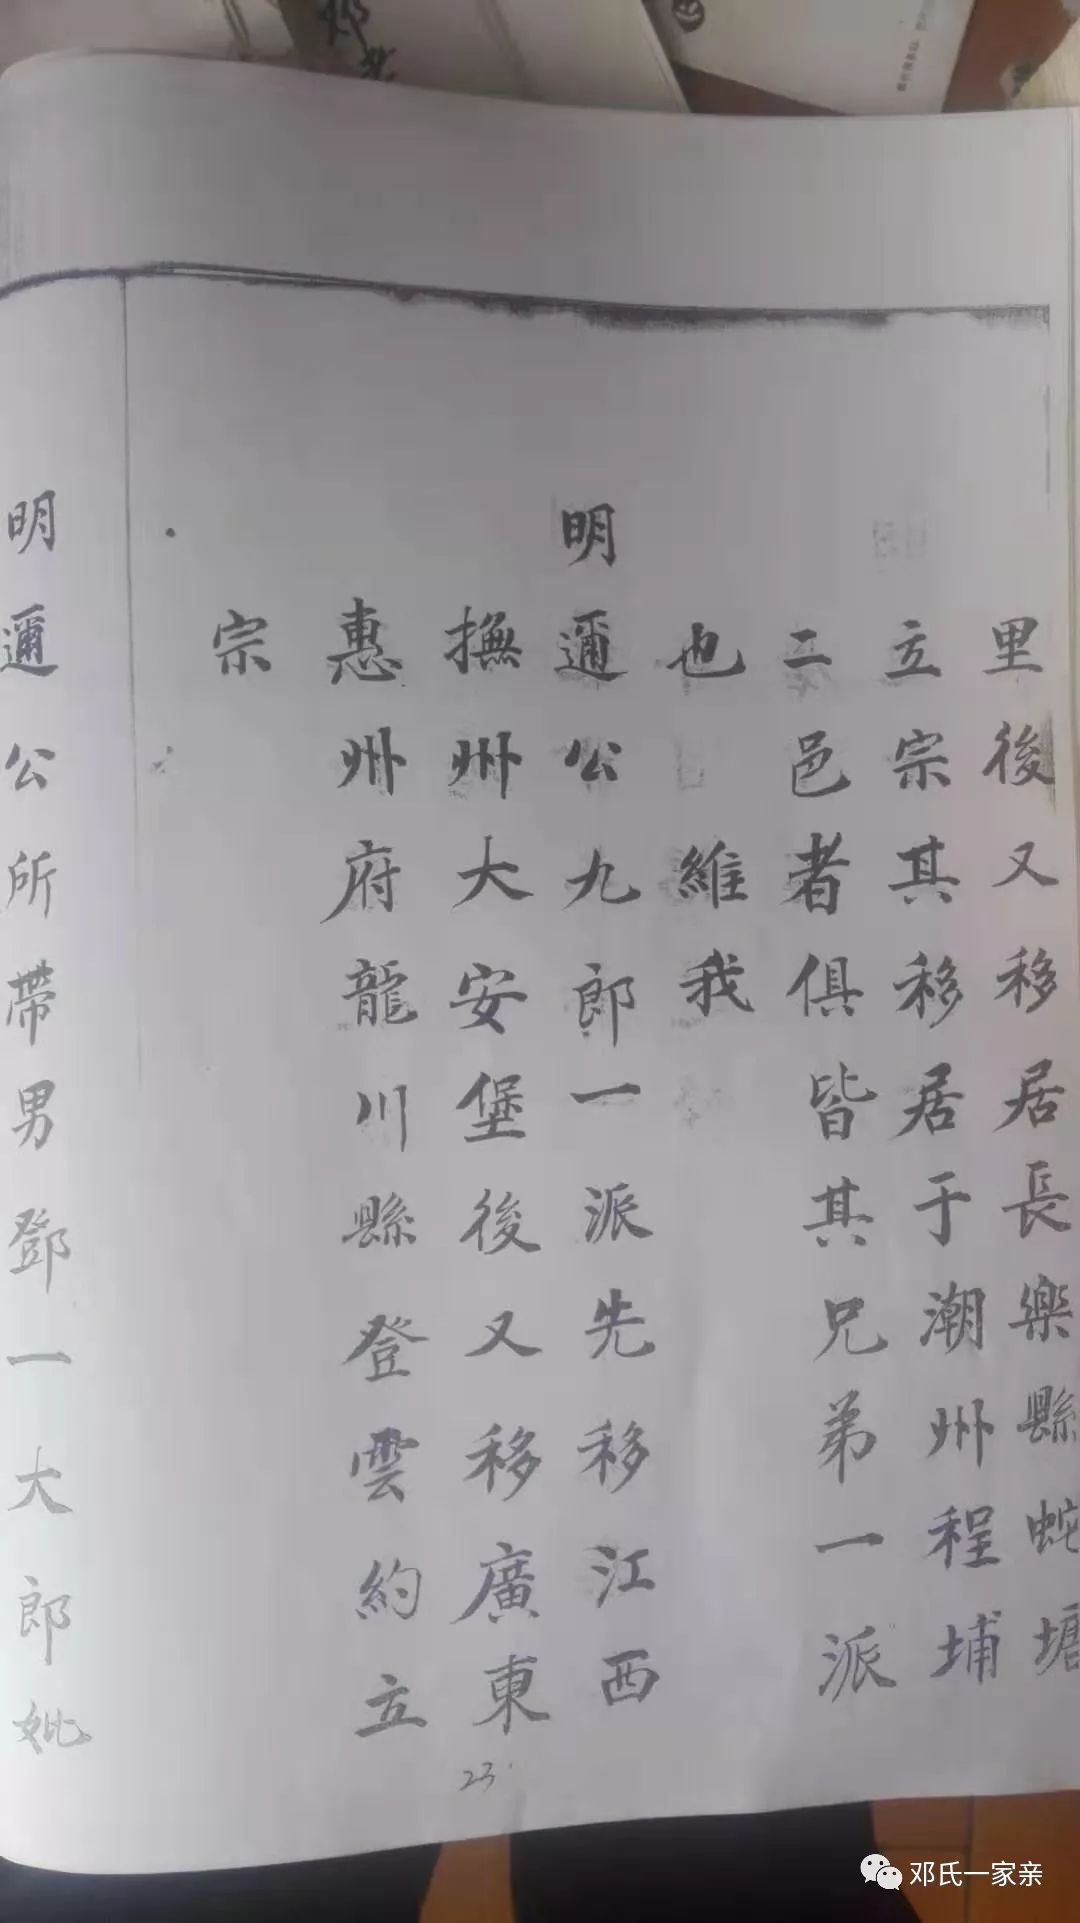 里後又移居長樂縣蛇塘
立宗其移居于潮州程埔
二邑者俱皆其兄弟一派
也維我
明邇公九郎一派先移江西
撫州大安堡後又移廣東
惠州府龍川縣登雲約立
宗
明邇公所帶男鄧一大郎妣
23
邓氏一家亲